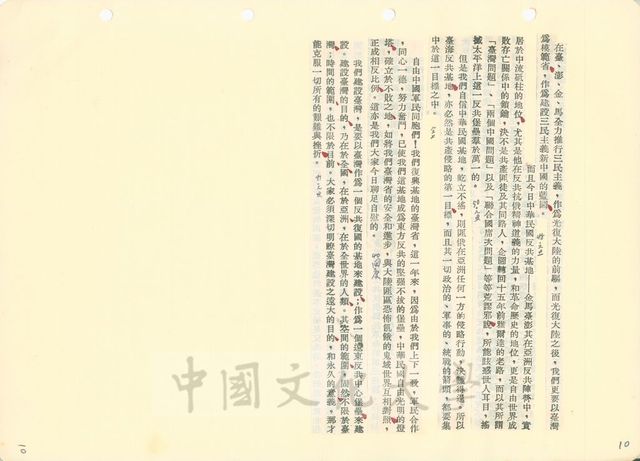 在臺、澎、金、馬全力推行三民主義，作為光復大陸的前驅，而光復大陸之後，我們更要以臺灣
作為模範省，作為建設三民主義新中國的藍圖。
而且今日中華民國反共基地——金馬臺澎其在亞洲反共陣營中，實
居於中流砥柱的地位，尤其是他在反共抗俄精神道義的力量，和革命歷史的地位，更是自由世界成
敗存亡關係中的鎖鑰，決不是共產匪徒及其同路人，企圖轉回十五年前雅爾達的老路，而以其所謂
「臺灣問題」、「兩個中國問題」以及「聯合國席次問題」等等荒謬邪說，所能淆惑世人耳目，搖
撼太平洋上這一反共堡壘羣於萬一的。
但是我們自信中華民國基地，屹立不搖，則匪俄在亞洲任何一方的侵略行動，決難得逞。所以
臺海反共基地，亦必然是共產侵略的第一目標，而且其一切政治的、軍事的、統戰的箭頭，都要集
中於這一目標之中。
自由中國軍民同胞們！我們復興基地的臺灣省，這一年來，因為由於我們上下一致，軍民合作
，同心一德，努力奮鬥，已使我們這基地成為東方反共的堅强不拔的堡壘，中華民國自由光明的燈
塔，確立於不敗之地，如將我們臺灣省的安全和進步，與大陸匪區恐怖飢餓的鬼域世界互相對照，
正成相反比例。這亦是我們大家今日聊足自慰的。
我們建設臺灣，是要以臺灣作為一個反共復國的基地來建設，作為一個遠東反共中心堡壘來建
設。建設臺灣的目的，乃在於全國，在於亞洲，在於全世界的人類。其空間的範圍，固然不限於臺
灣；時間的範圍，也不限於目前。大家必須深切明瞭臺灣建設之遠大的目的，和永久的意義，那才
能克服一切所有的艱難與挫折。
中國文化大學
10
10